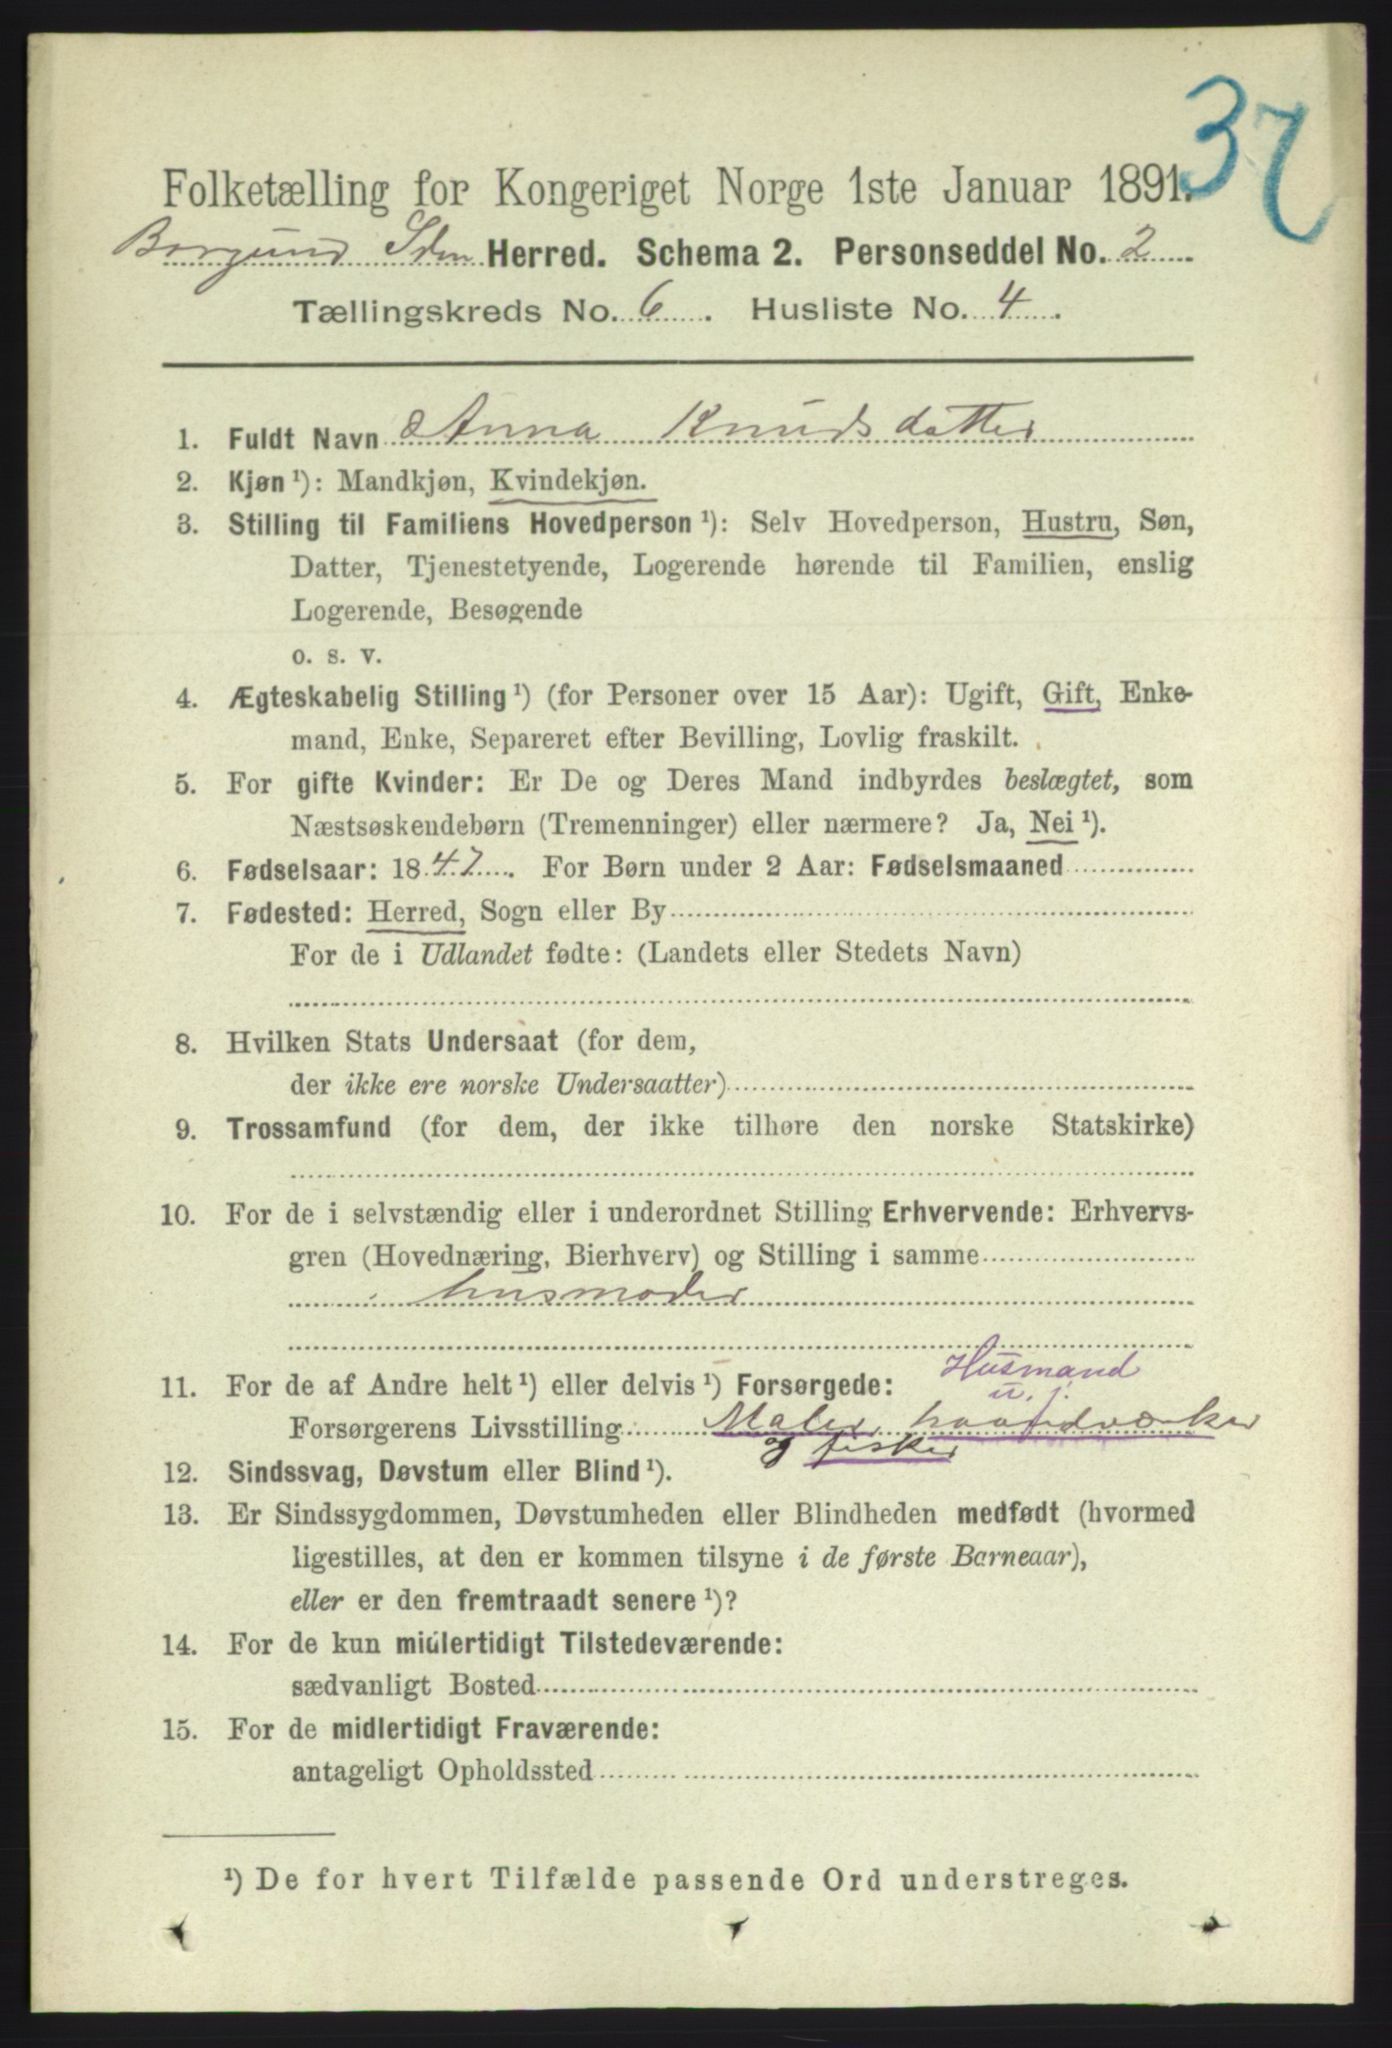 37
Folketælling for Kongeriget Norge 1ste Januar 1891.
Borgund Herred. Schema 2. Personseddel No. 2
Tællingskreds No. 6. Husliste No. 4.
1. Fuldt Navn Anna Knudsdatter
2. Kjøn ¹): Mandkjøn, Kvindekjøn.
3. Stilling til Familiens Hovedperson ¹): Selv Hovedperson, Hustru, Søn,
Datter, Tjenestetyende, Logerende hørende til Familien, enslig
Logerende, Besøgende
o. s. v.
4. Ægteskabelig Stilling ¹) (for Personer over 15 Aar): Ugift, Gift, Enke-
mand, Enke, Separeret efter Bevilling, Lovlig fraskilt.
5. For gifte Kvinder: Er De og Deres Mand indbyrdes beslægtet, som
Næstsøskendebørn (Tremenninger) eller nærmere? Ja, Nei ¹).
6. Fødselsaar: 1847. For Børn under 2 Aar: Fødselsmaaned
7. Fødested: Herred, Sogn eller By
For de i Udlandet fødte: (Landets eller Stedets Navn)
8. Hvilken Stats Undersaat (for dem,
der ikke ere norske Undersaatter)
9. Trossamfund (for dem, der ikke tilhøre den norske Statskirke)
10. For de i selvstændig eller i underordnet Stilling Erhvervende: Erhvervs-
gren (Hovednæring, Bierhverv) og Stilling i samme
husmoder
Husmand
u. j.
11. For de af Andre helt ¹) eller delvis ¹) Forsørgede:
Forsørgerens Livsstilling Maler, haandværker
og fisker
12. Sindssvag, Døvstum eller Blind ¹).
13. Er Sindssygdommen, Døvstumheden eller Blindheden medfødt (hvormed
ligestilles, at den er kommen tilsyne i de første Barneaar),
eller er den fremtraadt senere ¹)?
14. For de kun midlertidigt Tilstedeværende:
sædvanligt Bosted
15. For de midlertidigt Fraværende:
antageligt Opholdssted
¹) De for hvert Tilfælde passende Ord understreges.